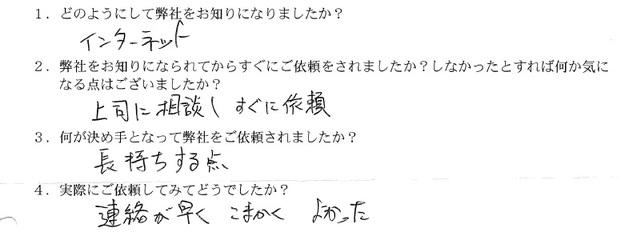 1．どのようにして弊社をお知りになりましたか？
インターネット
2．弊社をお知りになられてからすぐにご依頼をされましたか？しなかったとすれば何か気に
なる点はございましたか？
上司に相談し すぐに依頼
3．何が決め手となって弊社をご依頼されましたか？
長持ちする点
4．実際にご依頼してみてどうでしたか？
連絡が早く こまかく よかった